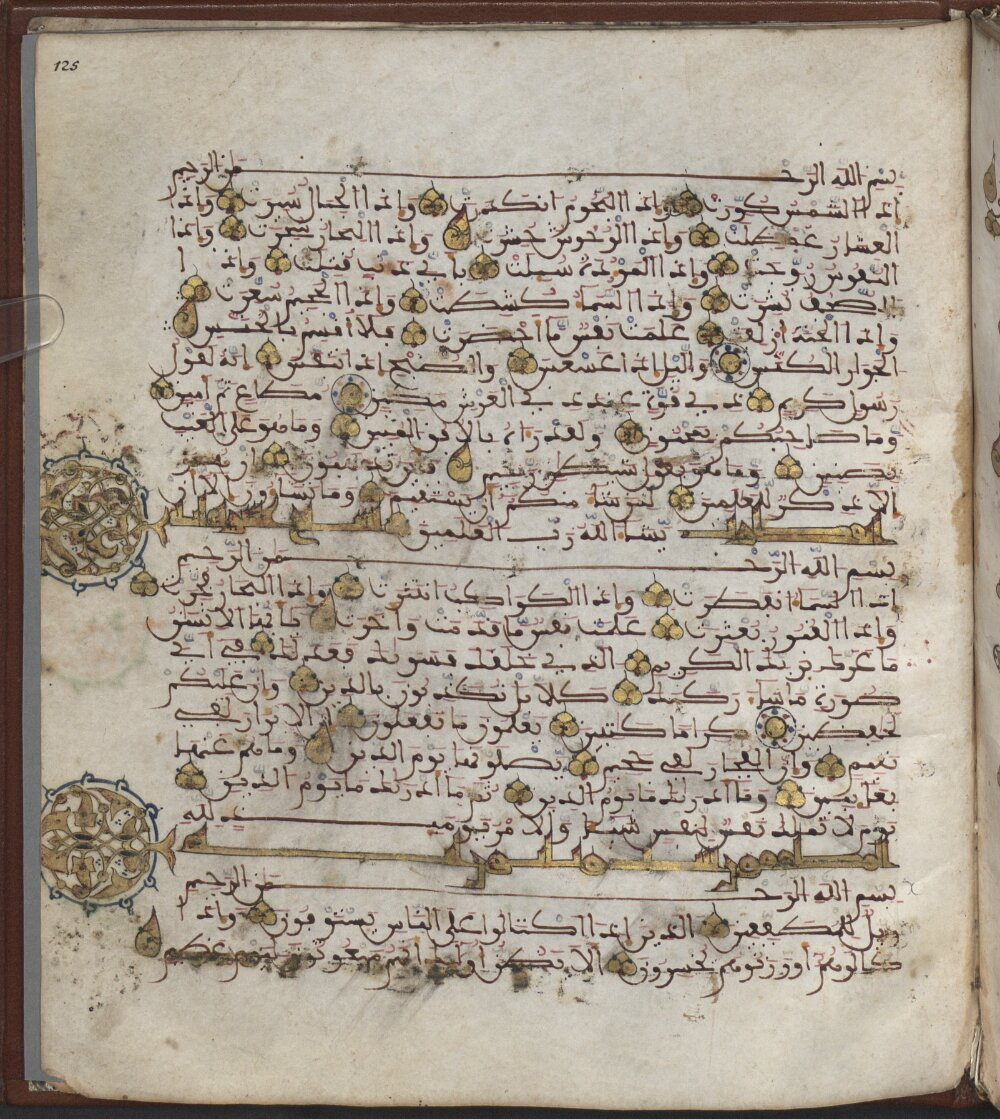 125
بسم الله الرحمن الرحيم
إذا الشمس كورت وإذا النجوم انكدرت وإذا الجبال سيرت وإذا
العشار عطلت وإذا الوحوش حشرت وإذا البحار سجرت وإذا
النفوس زوجت وإذا الموءدة سيلت بأي ذنب قتلت وإذا ا
لصحف نشرت وإذا السماء كشطت وإذا الجحيم سعرت
وإذا الجنة أزلفت علمت نفس ما أحضرت فلا أقسم بالخنس
الجوار الكنس واليل إذا عسعس والصبح إذا تنفس إنه لقول
رسول كريم ذي قوة عند ذي العرش مكين مطاع ثم أمين
وما صاحبكم بمجنون ولقد رءاه بالأفق المبين وما هو على الغيب
بضنين وما هو بقول شيطن رجيم فأين تذهبون إن هو
إلا ذكر للعلمين لمن شاء منكم أن يستقيم وما تشاءون إلا أن
يشاء الله رب العلمين
بسم الله الرحمن الرحيم
إذا السماء انفطرت وإذا الكواكب انتثرت وإذا البحار فجرت
وإذا القبور بعثرت علمت نفس ما قدمت وأخرت يأيها الإنسن
ما غرك بربك الكريم الذي خلقك فسويك فعدلك في أي
صورة ما شاء ركبك كلا بل تكذبون بالدين وإن عليكم
لحفظين كراما كتبين يعلمون ما تفعلون إن الأبرار لفي
نعيم وإن الفجار لفي جحيم يصلونها يوم الدين وما هم عنها
بغايبين وما أدريك ما يوم الدين ثم ما أدريك ما يوم الدين
يوم لا تملك نفس لنفس شيئا والأمر يوميذ لله
بسم الله الرحمن الرحيم
ويل للمطففين الذين إذا اكتالوا على الناس يستوفون وإذا
كالوهم أو وزنوهم يخسرون ألا يظن أوليك أنهم مبعوثون ليوم عظيم